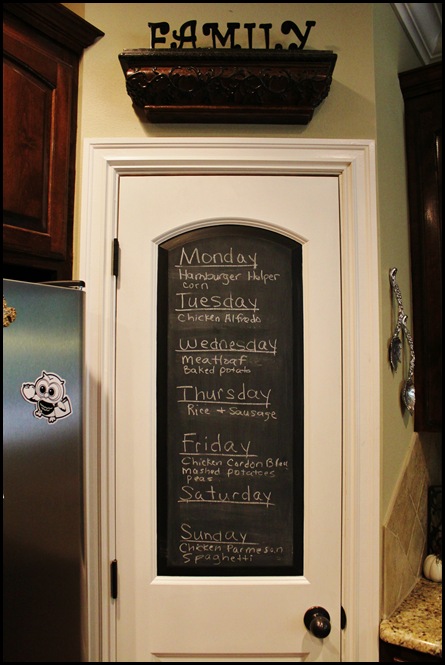 FAMILY
Monday
Hamburger Helper
corn
Tuesday
Chicken Alfredo
Wednesday
Meatloaf
Baked potato
Thursday
Rice + Sausage
Friday
Chicken Cordon Bleu
mashed potatoes
peas
Saturday
Sunday
Chicken Parmesan
Spaghetti